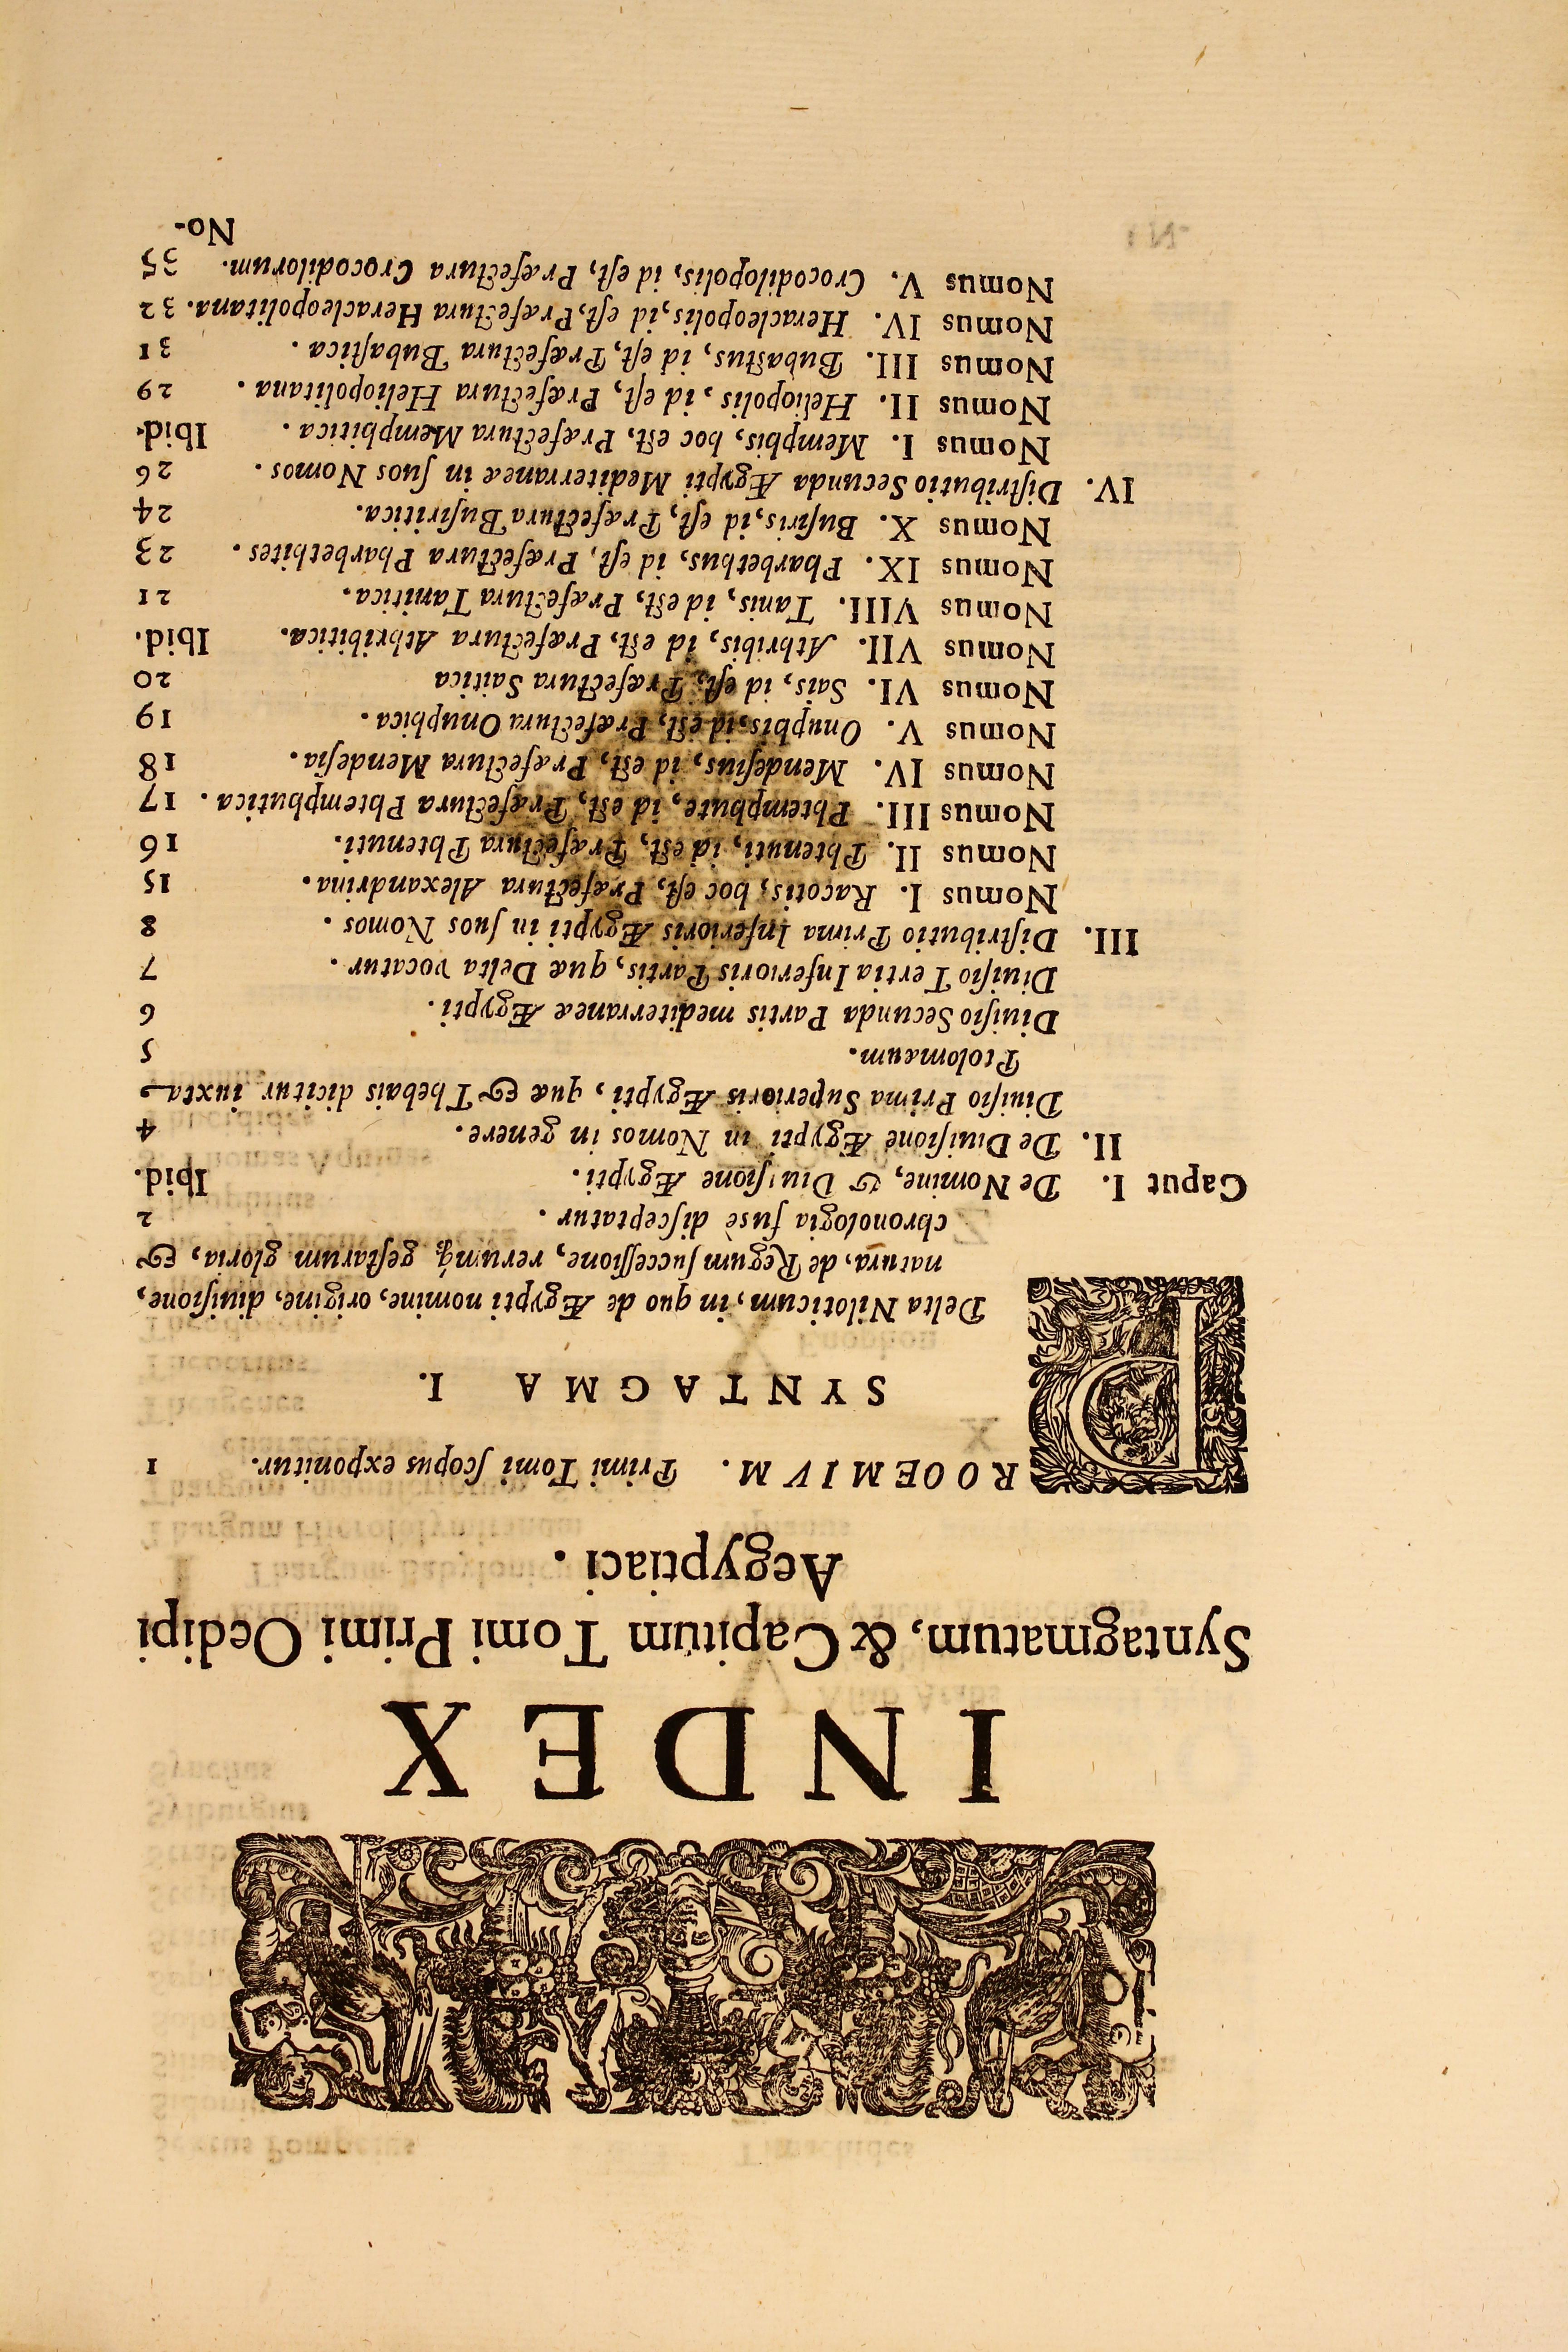 INDEX
Syntagmatum, & Capitum Tomi Primi Oedipi
Aegyptiaci.
PROOEMIVM. Primi Tomi ſcopus exponitur. 1
SYNTAGMA I.
Delta Niloticum, in quo de Ægypti nomine, origine, diuiſione,
natura, de Regum ſucceſſione, rerumq́; geſtarum gloria, &
chronologia fusè diſceptatur. 2
Caput I. De Nomine, & Diuiſione Ægypti. Ibid.
II. De Diuiſione Ægypti in Nomos in genere. 4
Diuiſio Prima Superioris Ægypti, quæ & Thebais dicitur iuxta
Ptolomæum. 5
Diuiſio Secunda Partis mediterraneæ Ægypti. 6
Diuiſio Tertia Inferioris Partis, quæ Delta vocatur. 7
III. Diſtributio Prima Inferioris Ægypti in ſuos Nomos. 8
Nomus I. Racotis, hoc eſt, Præfectura Alexandrina. 15
Nomus II. Phtenuti, id eſt, Præfectura Phtenuti. 16
Nomus III. Phtemphute, id eſt, Præfectura Phtemphutica. 17
Nomus IV. Mendeſius, id eſt, Præfectura Mendeſia. 18
Nomus V. Onuphis, id eſt, Præfectura Onuphica. 19
Nomus VI. Sais, id eſt, Præfectura Saitica 20
Nomus VII. Athribis, id eſt, Præfectura Athribitica. Ibid.
Nomus VIII. Tanis, id eſt, Præfectura Tanitica. 21
Nomus IX. Pharbethus, id eſt, Præfectura Pharbethites. 23
Nomus X. Buſiris, id eſt, Præfectura Buſiritica. 24
IV. Diſtributio Secunda Ægypti Mediterraneæ in ſuos Nomos. 26
Nomus I. Memphis, hoc eſt, Præfectura Memphitica. Ibid.
Nomus II. Heliopolis, id eſt, Præfectura Heliopolitana. 29
Nomus III. Bubaſtus, id eſt, Præfectura Bubaſtica. 31
Nomus IV. Heracleopolis, id eſt, Præfectura Heracleopolitana. 32
Nomus V. Crocodilopolis, id eſt, Præfectura Crocodilorum. 35
No-